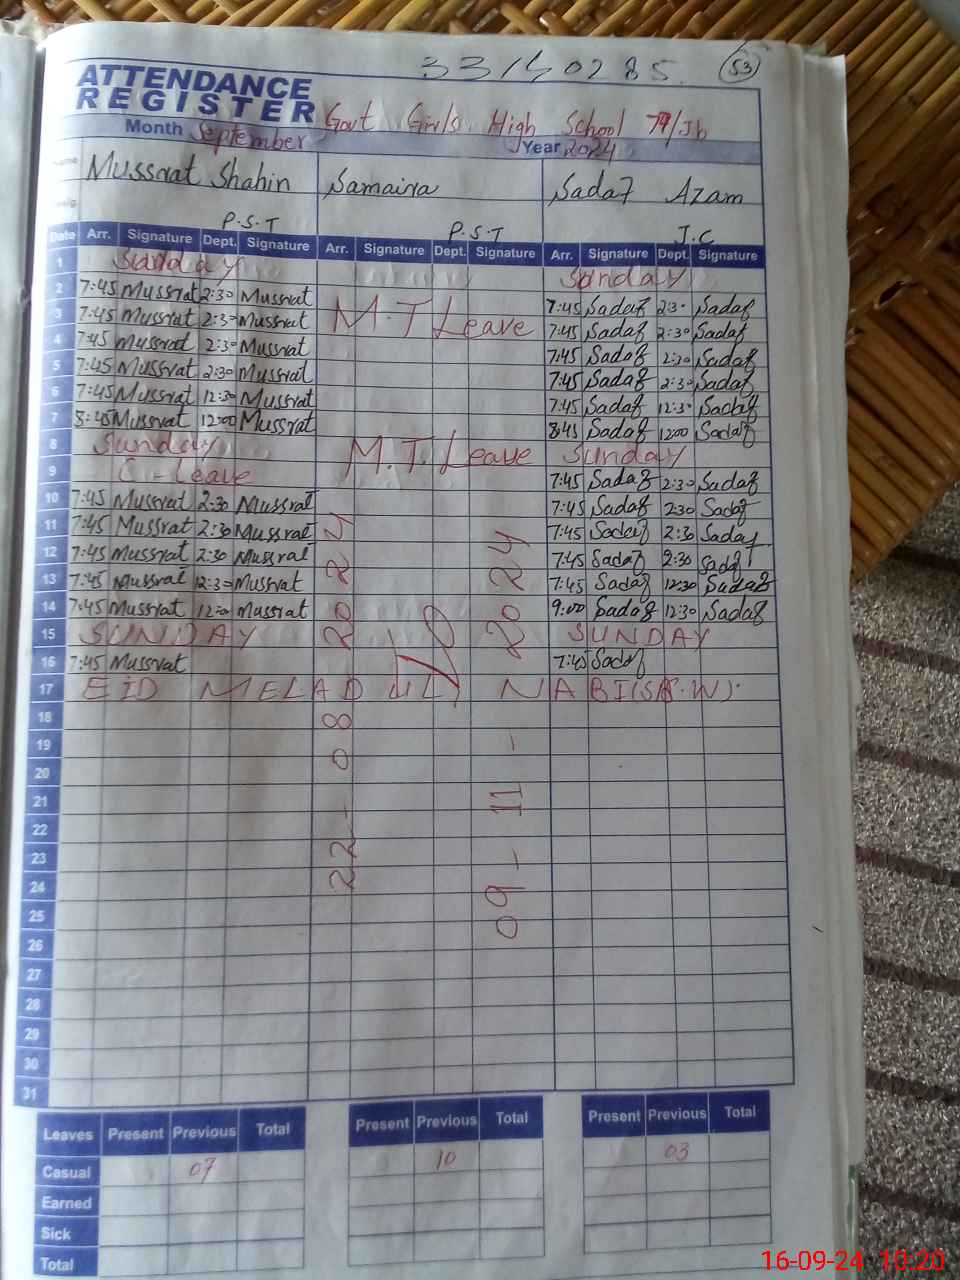 33140285 53
ATTENDANCE
REGISTER Govt Girls High School 79/Jb
Month September Year 2024
Name Mussrat Shahin Samaira Sadaf Azam
Desig. P.S.T P.S.T J.C
Date Arr. Signature Dept. Signature Arr. Signature Dept. Signature Arr. Signature Dept. Signature
1 Sunday Sunday
2 7:45 Mussrat 2:30 Mussrat 7:45 Sadaf 2:30 Sadaf
3 7:45 Mussrat 2:30 Mussrat M.T Leave 7:45 Sadaf 2:30 Sadaf
4 7:45 Mussrat 2:30 Mussrat 7:45 Sadaf 2:30 Sadaf
5 7:45 Mussrat 2:30 Mussrat 7:45 Sadaf 2:30 Sadaf
6 7:45 Mussrat 12:30 Mussrat 7:45 Sadaf 12:30 Sadaf
7 8:45 Mussrat 12:00 Mussrat 8:45 Sadaf 12:00 Sadaf
8 Sunday M.T. Leave Sunday
9 C-Leave 7:45 Sadaf 2:30 Sadaf
10 7:45 Mussrat 2:30 Mussrat 7:45 Sadaf 2:30 Sadaf
11 7:45 Mussrat 2:30 Mussrat 7:45 Sadaf 2:30 Sadaf
12 7:45 Mussrat 2:30 Mussrat 7:45 Sadaf 2:30 Sadaf
13 7:45 Mussrat 12:30 Mussrat 7:45 Sadaf 12:30 Sadaf
14 7:45 Mussrat 12:00 Mussrat 9:00 Sadaf 12:30 Sadaf
15 SUNDAY SUNDAY
16 7:45 Mussrat 7:45 Sadaf
17 EID MELAD UL NABI(S.A.W).
18
19
20
21
22
23
24
25
26
27
28
29
30
31
22-08 2024
To
09-11-2024
Leaves Present Previous Total Present Previous Total Present Previous Total
Casual 07 10 03
Earned
Sick
Total
16-09-24 10:20